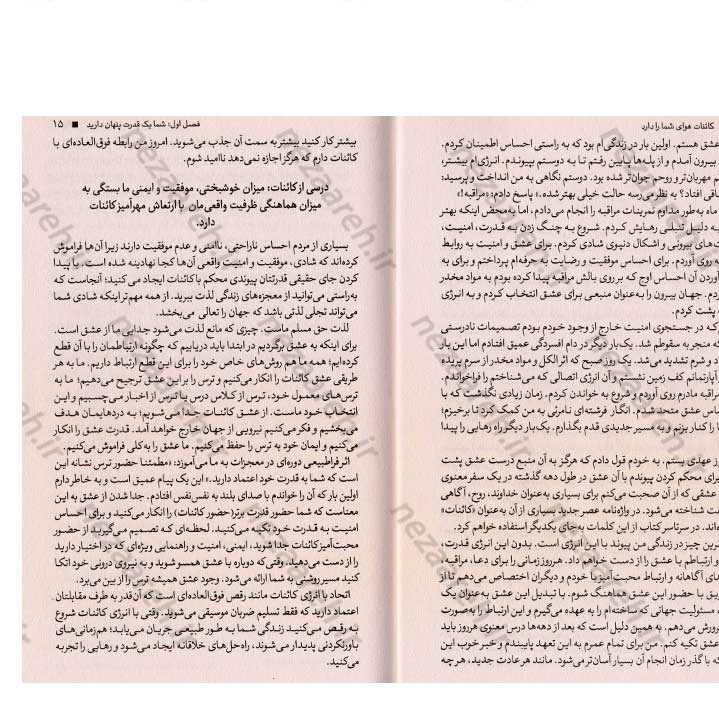 کائنات هوای شما را دارد
عشق هستم. اولین بار در زندگی‌ام بود که به راستی احساس اطمینان کردم.
بیرون آمدم و از پله‌ها پایین رفتم تا به دوستم بپیوندم. انرژی‌ام بیشتر،
م مهربان‌تر و روحم جوان‌تر شده بود. دوستم نگاهی به من انداخت و پرسید:
فاقی افتاد؟ به نظر می‌رسه حالت خیلی بهتر شده.» پاسخ دادم: «مراقبه!»
ماه به‌طور مداوم تمرینات مراقبه را انجام می‌دادم، اما به‌محض اینکه بهتر
به دلیل تنبلی رهایش کردم. شروع به چنگ زدن به قدرت، امنیت،
ت‌های بیرونی و اشکال دنیوی شادی کردم. برای عشق و امنیت به روابط
ه روی آوردم. برای احساس موفقیت و رضایت به حرفه‌ام پرداختم و برای به
آوردن آن احساس اوج که بر روی بالش مراقبه پیدا کرده بودم به مواد مخدر
دم. جهان بیرون را به‌عنوان منبعی برای عشق انتخاب کردم و به انرژی
پشت کردم.
که در جستجوی امنیت خارج از وجود خودم بودم تصمیمات نادرستی
که منجر به سقوطم شد. یک بار دیگر در دام افسردگی عمیق افتادم اما این بار
و شرم تشدید می‌شد. یک روز صبح که اثر الکل و مواد مخدر از سرم پریده
آپارتمانم کف زمین نشستم و آن انرژی اتصالی که می‌شناختم را فراخواندم.
مراقبه مادرم روی آوردم و شروع به خواندن کردم. زمان زیادی نگذشت که با
اس عشق متحد شدم. انگار فرشته‌ای نامرئی به من کمک کرد تا برخیزم؛
ا را کنار بزنم و به مسیر جدیدی قدم بگذارم. یک بار دیگر راه رهایی را پیدا
وز عهدی بستم. به خودم قول دادم که هرگز به آن منبع درست عشق پشت
برای محکم کردن پیوندم با آن عشق در طول دهه گذشته در یک سفر معنوی
عشقی که از آن صحبت می‌کنم برای بسیاری به‌عنوان خداوند، روح، آگاهی
ت شناخته می‌شود. در واژه‌نامه عصر جدید بسیاری از آن به‌عنوان «کائنات»
ه‌اند. در سرتاسر کتاب از این کلمات به‌جای یکدیگر استفاده خواهم کرد.
ترین چیز در زندگی من پیوند با این انرژی است. بدون این انرژی قدرت،
و ارتباطم با عشق را از دست خواهم داد. هر روز زمانی را برای دعا، مراقبه،
های آگاهانه و ارتباط محبت‌آمیز با خودم و دیگران اختصاص می‌دهم تا از
ریق با حضور این عشق هماهنگ شوم. با تبدیل این عشق به‌عنوان یک
مسئولیت جهانی که ساخته‌ام را به عهده می‌گیرم و این ارتباط را به‌صورت
پرورش می‌دهم. به همین دلیل است که بعد از دهه‌ها درس معنوی هر روز باید
عشق تکیه کنم. من برای تمام عمرم به این تعهد پایبندم و خبر خوب این
ه با گذر زمان انجام آن بسیار آسان‌تر می‌شود. مانند هر عادت جدید، هر چه
فصل اول: شما یک قدرت پنهان دارید ■ ۱۵
بیشتر کار کنید بیشتر به سمت آن جذب می‌شوید. امروز من رابطه فوق‌العاده‌ای با
کائنات دارم که هرگز اجازه نمی‌دهد ناامید شوم.
درسی از کائنات: میزان خوشبختی، موفقیت و ایمنی ما بستگی به
میزان هماهنگی ظرفیت واقعی‌مان با ارتعاش مهرآمیز کائنات
دارد.
بسیاری از مردم احساس ناراحتی، ناامنی و عدم موفقیت دارند زیرا آن‌ها فراموش
کرده‌اند که شادی، موفقیت و امنیت واقعی آن‌ها کجا نهادینه شده است. با پیدا
کردن جای حقیقی قدرتتان پیوندی محکم با کائنات ایجاد می‌کنید؛ آنجاست که
به‌راستی می‌توانید از معجزه‌های زندگی لذت ببرید. از همه مهم‌تر اینکه شادی شما
می‌تواند تجلی لذتی باشد که جهان را تعالی می‌بخشد.
لذت حق مسلم ماست. چیزی که مانع لذت می‌شود جدایی ما از عشق است.
برای اینکه به عشق برگردیم در ابتدا باید دریابیم که چگونه ارتباطمان را با آن قطع
کرده‌ایم؛ همه ما هم روش‌های خاص خود را برای این قطع ارتباط داریم. ما به هر
طریقی عشق کائنات را انکار می‌کنیم و ترس را بر این عشق ترجیح می‌دهیم؛ ما به
ترس‌های معمول خود، ترس از کلاس درس یا ترس از اخبار می‌چسبیم و این
انتخاب خود ماست. از عشق کائنات جدا می‌شویم؛ به دردهایمان هدف
می‌بخشیم و فکر می‌کنیم نیرویی از جهان خارج خواهد آمد. قدرت عشق را انکار
می‌کنیم و ایمان خود به ترس را حفظ می‌کنیم. ما عشق را به کلی فراموش می‌کنیم.
اثر فراطبیعی دوره‌ای در معجزات به ما می‌آموزد: «مطمئنا حضور ترس نشانه این
است که شما به قدرت خود اعتماد دارید.» این یک پیام عمیق است و به خاطر دارم
اولین بار که آن را خواندم با صدای بلند به نفس‌نفس افتادم. جدا شدن از عشق به این
معناست که شما حضور قدرت برتر( حضور کائنات) را انکار می‌کنید و برای احساس
امنیت به قدرت خود تکیه می‌کنید. لحظه‌ای که تصمیم می‌گیرید از حضور
محبت‌آمیز کائنات جدا شوید، ایمنی، امنیت و راهنمایی ویژه‌ای که در اختیار دارید
را از دست می‌دهید. وقتی که دوباره با عشق همسو شوید و به نیروی درونی خود اتکا
کنید مسیر روشنی به شما ارائه می‌شود. وجود عشق همیشه ترس را از بین می‌برد.
اتحاد با انرژی کائنات مانند رقص فوق‌العاده‌ای است که آن‌قدر به طرف مقابلتان
اعتماد دارید که فقط تسلیم ضربان موسیقی می‌شوید. وقتی با انرژی کائنات شروع
به رقص می‌کنید زندگی شما به طور طبیعی جریان می‌یابد؛ هم‌زمانی‌های
باورنکردنی پدیدار می‌شوند، راه‌حل‌های خلاقانه ایجاد می‌شود و رهایی را تجربه
می‌کنید.
nezaareh.ir